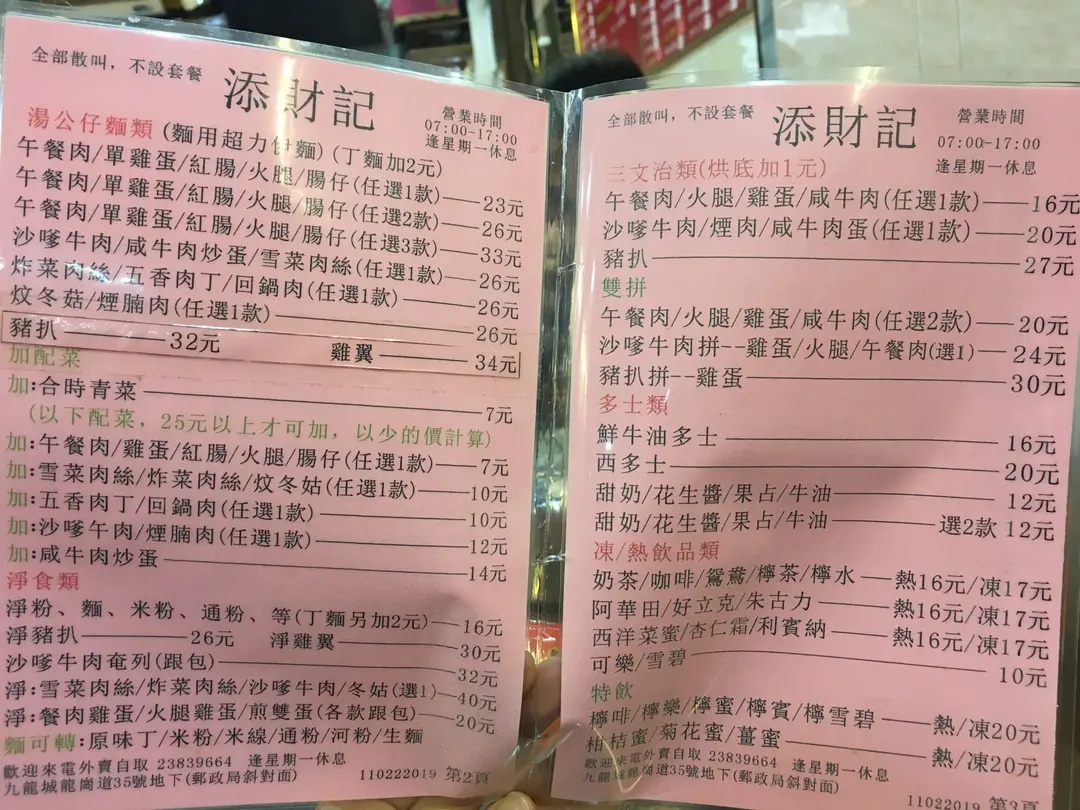 全部散叫，不設套餐
添財記
營業時間
07:00-17:00
逢星期一休息
湯公仔麵類(麵用超力伊麵)(丁麵加2元)
午餐肉/單雞蛋/紅腸/火腿/腸仔(任選1款)——23元
午餐肉/單雞蛋/紅腸/火腿/腸仔(任選2款)——26元
午餐肉/單雞蛋/紅腸/火腿/腸仔(任選3款)——33元
沙嗲牛肉/咸牛肉炒蛋/雪菜肉絲(任選1款)——26元
炸菜肉絲/五香肉丁/回鍋肉(任選1款)——26元
炆冬菇/煙腩肉(任選1款)——26元
豬扒——32元 雞翼——34元
加配菜
加:合時青菜——7元
(以下配菜，25元以上才可加，以少的價計算)
加:午餐肉/雞蛋/紅腸/火腿/腸仔(任選1款)——7元
加:雪菜肉絲/炸菜肉絲/炆冬菇(任選1款)——10元
加:五香肉丁/回鍋肉(任選1款)——10元
加:沙嗲午肉/煙腩肉(任選1款)——12元
加:咸牛肉炒蛋——14元
淨食類
淨粉、麵、米粉、通粉、等(丁麵另加2元)——16元
淨豬扒——26元 淨雞翼——30元
沙嗲牛肉奄列(跟包)——32元
淨:雪菜肉絲/炸菜肉絲/沙嗲牛肉/冬姑(選1)——40元
淨:餐肉雞蛋/火腿雞蛋/煎雙蛋(各款跟包)——20元
麵可轉:原味丁/米粉/米線/通粉/河粉/生麵
歡迎來電外賣自取 23839664 逢星期一休息
九龍城龍崗道35號地下(郵政局斜對面) 110222019 第2頁
全部散叫，不設套餐
添財記
營業時間
07:00-17:00
逢星期一休息
三文治類(烘底加1元)
午餐肉/火腿/雞蛋/咸牛肉(任選1款)——16元
沙嗲牛肉/煙肉/咸牛肉蛋(任選1款)——20元
豬扒——27元
雙拼
午餐肉/火腿/雞蛋/咸牛肉(任選2款)——20元
沙嗲牛肉拼--雞蛋/火腿/午餐肉(選1)——24元
豬扒拼--雞蛋——30元
多士類
鮮牛油多士——16元
西多士——20元
甜奶/花生醬/果占/牛油——12元
甜奶/花生醬/果占/牛油——選2款 12元
凍/熱飲品類
奶茶/咖啡/鴛鴦/檸茶/檸水——熱16元/凍17元
阿華田/好立克/朱古力——熱16元/凍17元
西洋菜蜜/杏仁霜/利賓納——熱16元/凍17元
可樂/雪碧——10元
特飲
檸啡/檸樂/檸蜜/檸賓/檸雪碧——熱/凍20元
柑桔蜜/菊花蜜/薑蜜——熱/凍20元
歡迎來電外賣自取 23839664 逢星期一休息
九龍城龍崗道35號地下(郵政局斜對面) 110222019 第3頁